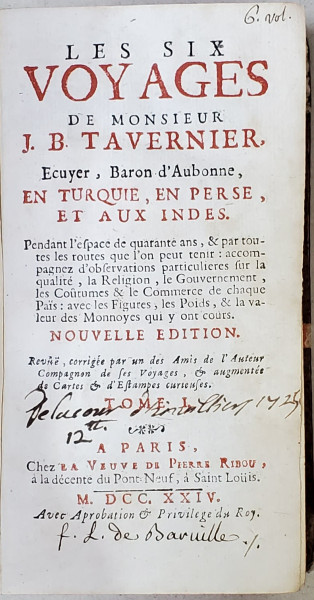 6. vol.
LES SIX
VOYAGES
DE MONSIEUR
J. B. TAVERNIER,
Ecuyer, Baron d'Aubonne,
EN TURQUIE, EN PERSE,
ET AUX INDES.
Pendant l'espace de quarante ans, & par tou-
tes les routes que l'on peut tenir : accom-
pagnez d'observations particulieres sur la
qualité, la Religion, le Gouvernement,
les Coûtumes & le Commerce de chaque
Païs : avec les Figures, les Poids, & la va-
leur des Monnoyes qui y ont cours.
NOUVELLE EDITION.
Revûë, corrigée par un des Amis de l'Auteur
Compagnon de ses Voyages, & augmentée
de Cartes & d'Estampes curieuses.
TOME I.
Delacour
12tt.
A PARIS,
Chez LA VEUVE DE PIERRE RIBOU,
à la décente du Pont-Neuf, à Saint Loüis.
M. DCC. XXIV.
Avec Aprobation & Privilege du Roy.
f. L. de Barville